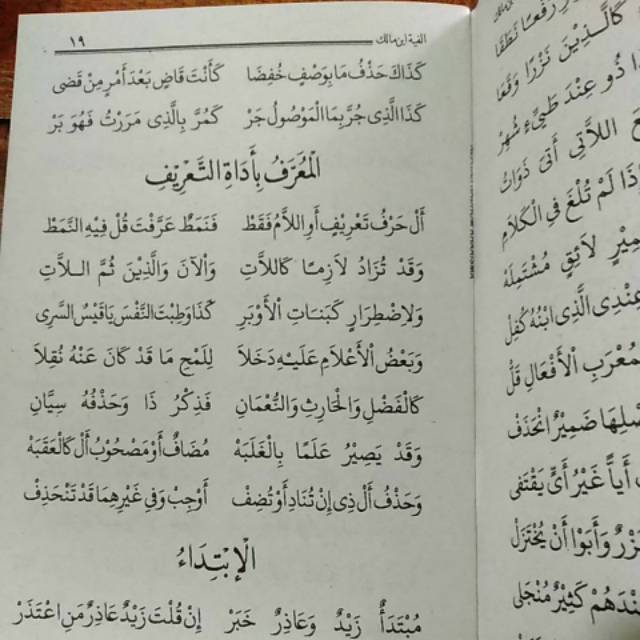 الفية ابن مالك ١٩
كَذَاكَ حَذْفُ مَا بِوَصْفٍ خُفِضَا كَأَنْتَ قَاضٍ بَعْدَ أَمْرٍ مِنْ قَضَى
كَذَا الَّذِى جُرَّ بِمَا الْمَوْصُولَ جَرْ كَمُرَّ بِالَّذِى مَرَرْتُ فَهُوَ بَرْ
الْمُعَرَّفُ بِأَدَاةِ التَّعْرِيْفِ
أَلْ حَرْفُ تَعْرِيْفٍ أَوِ اللاَّمُ فَقَطْ فَنَمَطٌ عَرَّفْتَ قُلْ فِيْهِ النَّمَطْ
وَقَدْ تُزَادُ لاَزِمًا كَاللاَّتِ وَاْلآنَ وَالَّذِيْنَ ثُمَّ اللاَّتِ
وَلاِضْطِرَارٍ كَبَنَاتِ اْلأَوْبَرِ كَذَا وَطِبْتَ النَّفْسَ يَا قَيْسُ السَّرِى
وَبَعْضُ اْلأَعْلاَمِ عَلَيْهِ دَخَلاَ لِلَمْحِ مَا قَدْ كَانَ عَنْهُ نُقِلاَ
كَالْفَضْلِ وَالْحَارِثِ وَالنُّعْمَانِ فَذِكْرُ ذَا وَحَذْفُهُ سِيَّانِ
وَقَدْ يَصِيْرُ عَلَمًا بِالْغَلَبَهْ مُضَافٌ أَوْ مَصْحُوْبُ أَلْ كَالْعَقَبَهْ
وَحَذْفَ أَلْ ذِى إِنْ تُنَادِ أَوْ تُضِفْ أَوْجِبْ وَفِى غَيْرِهِمَا قَدْ تَنْحَذِفْ
اْلإِبْتِدَاءُ
مُبْتَدَأٌ زَيْدٌ وَعَاذِرٌ خَبَرْ إِنْ قُلْتَ زَيْدٌ عَاذِرٌ مَنِ اعْتَذَرْ
رَفْعًا نَطَقَا
كَالَّذِيْنَ نَزْرًا وَقَعَا
ذُو عِنْدَ طَيِّىءٍ شُهِرْ
اللاَّتِى أَتَى ذَوَاتُ
لَمْ تُلْغَ فِى الْكَلاَمِ
لاَئِقٍ مُشْتَمِلَهْ
عِنْدِى الَّذِى ابْنُهُ كُفِلْ
مُعْرَبِ اْلأَفْعَالِ قَلْ
ضَمِيْرٌ انْحَذَفْ
أَيًّا غَيْرُ أَىٍّ يَقْتَفِى
وَأَبَوْا أَنْ يُخْتَزَلْ
كَثِيْرٌ مُنْجَلِى